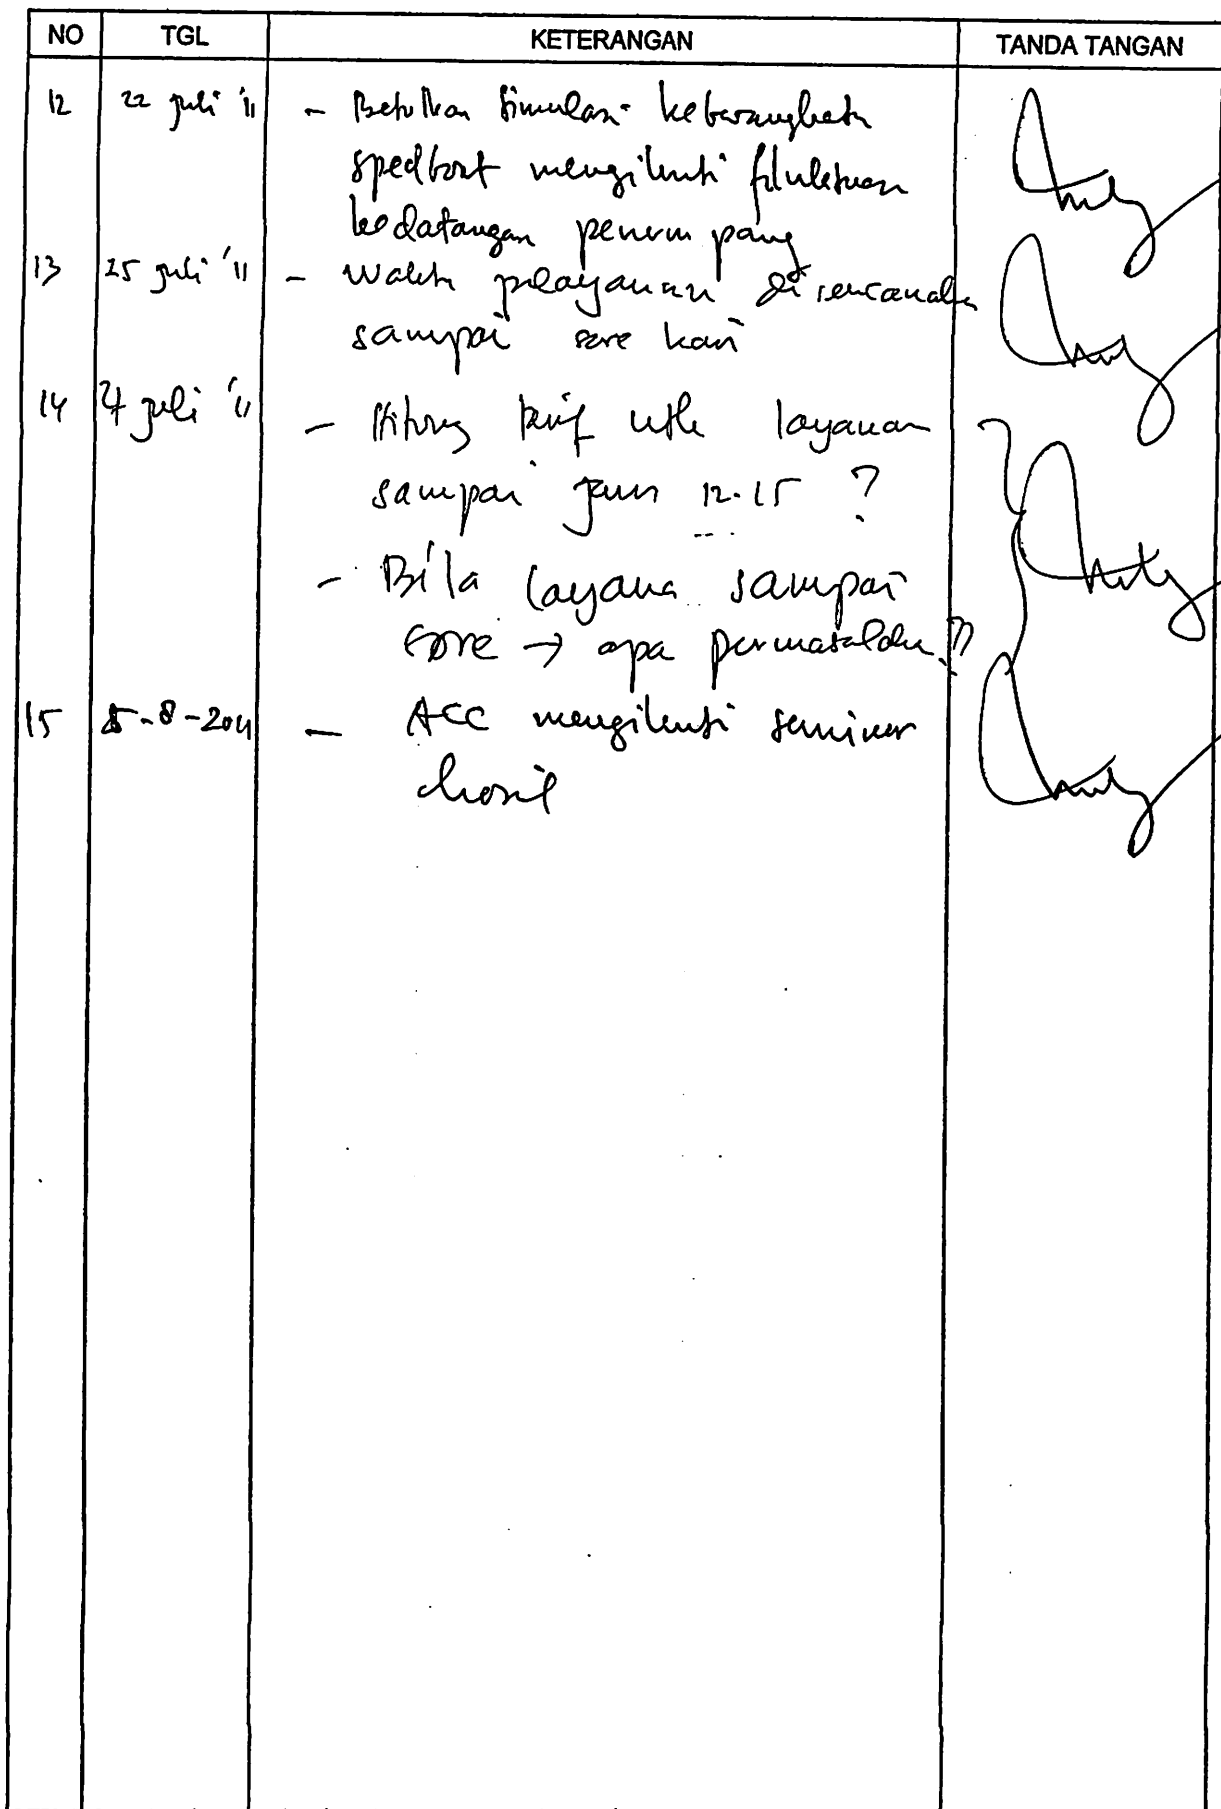 NO TGL KETERANGAN TANDA TANGAN
12 22 juli '11 - Betulkan Simulasi keberangkatan
spedboat mengikuti fluktuasi
kedatangan penumpang
13 25 juli '11 - Waktu pelayanan direncanakan
sampai sore hari
14 juli '11 - Hitung tarif utk layanan
sampai jam 12.15 ?
- Bila layana sampai
sore → apa permasalahan ??
15 8-2011 - ACC mengikuti seminar
hasil